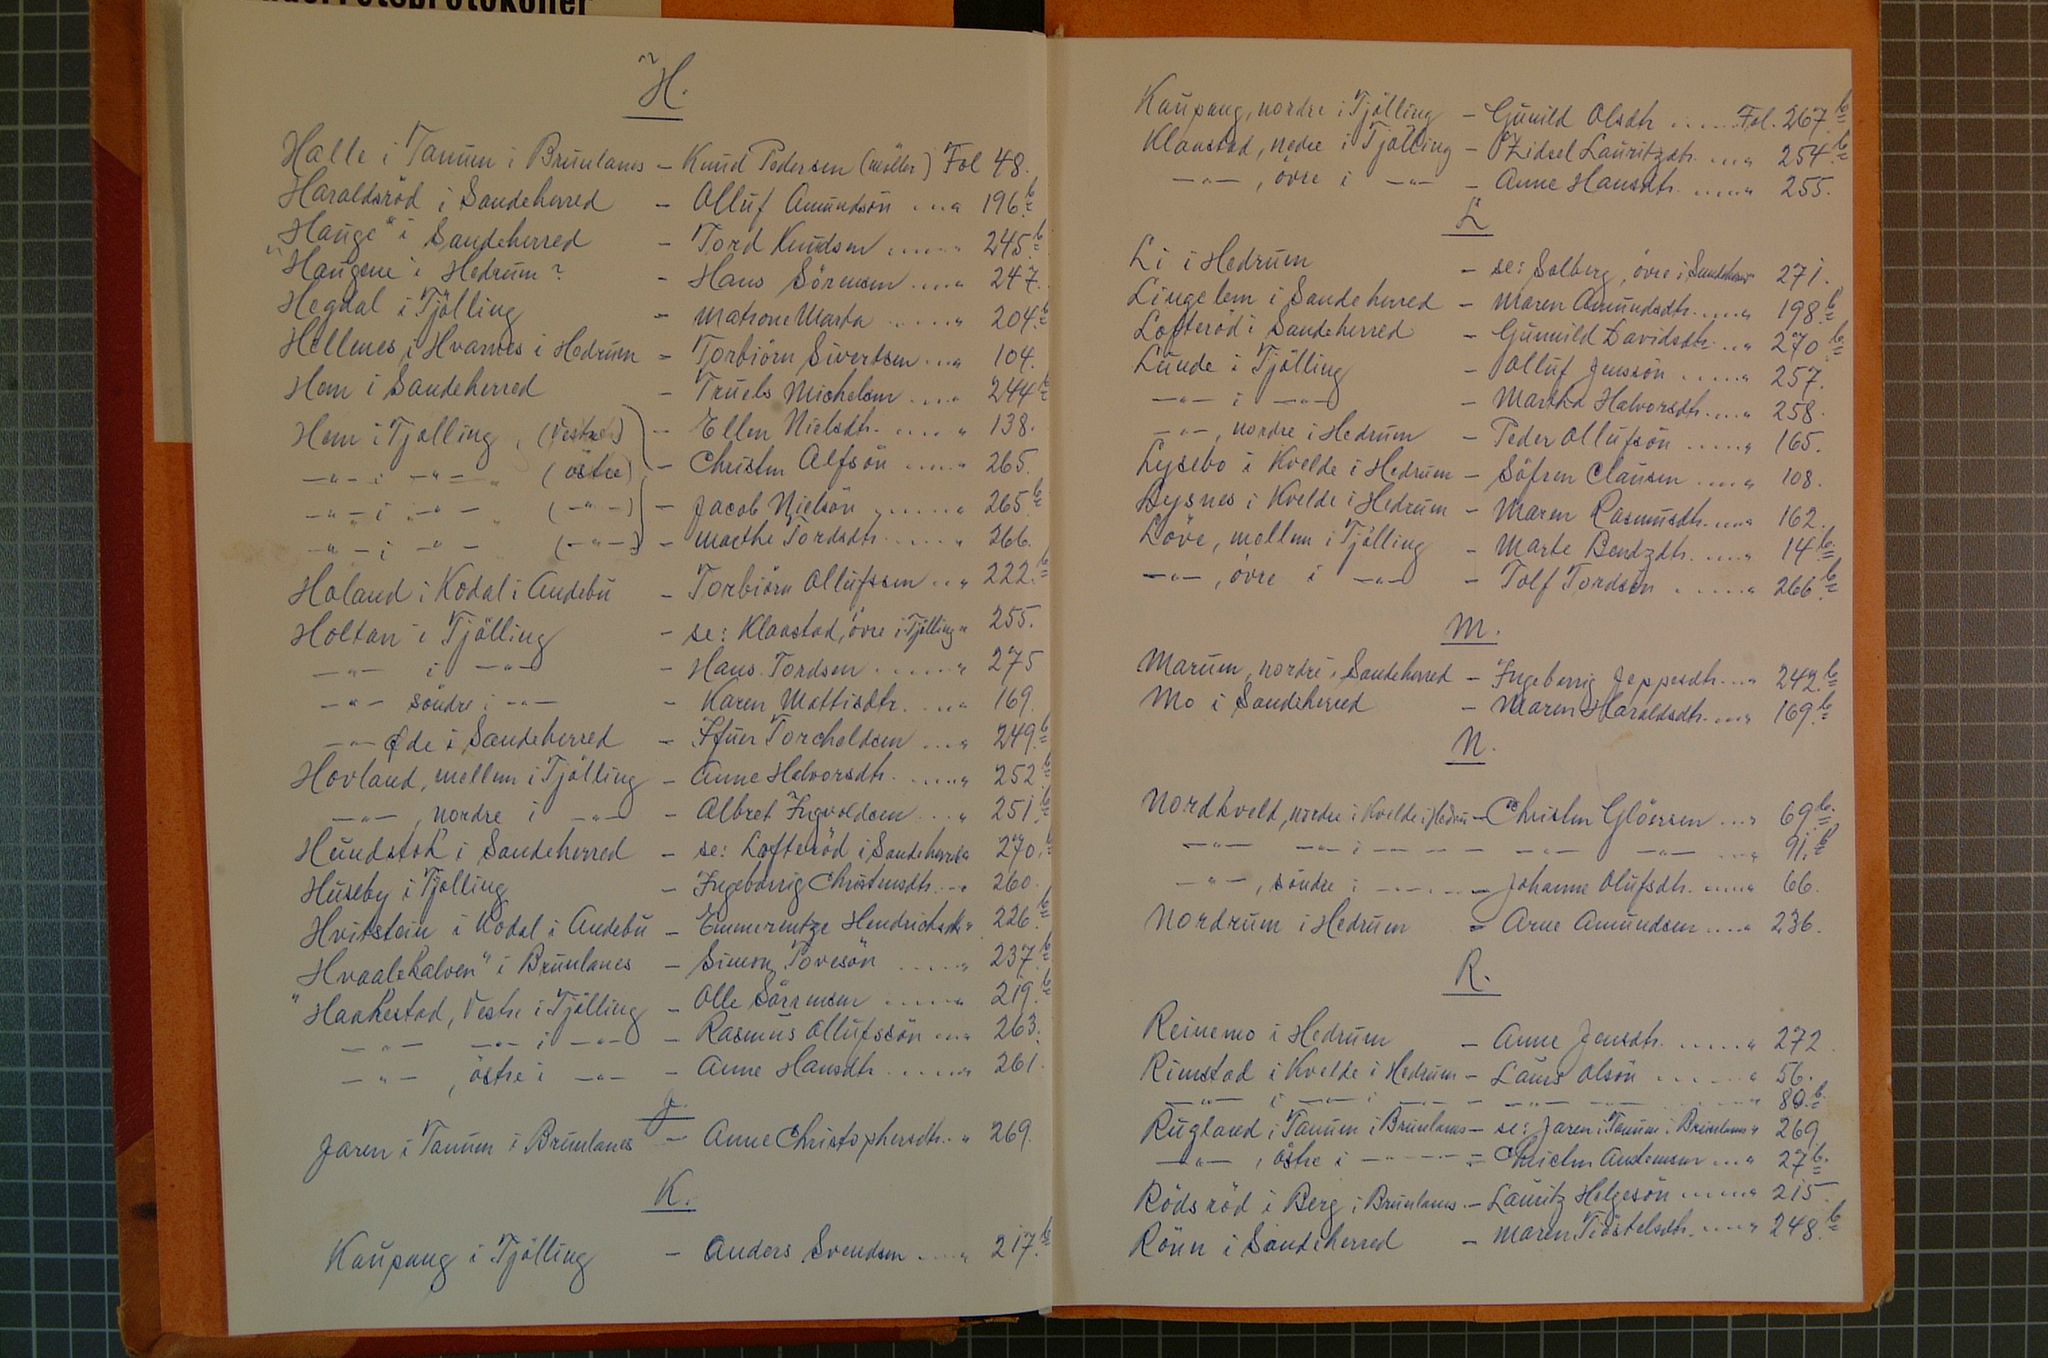 H.
Halle i Tanum i Brunlanes - Knud Pedersen (Möller) Fol 48.
Haraldsröd i Sandeherred - Olluf Amundsön .... " 196.b
Hauge i Sandeherred - Tord Knudsen ..... " 245.b
"Haugene" i Hedrum? - Hans Sörensen .... " 247.
Hegdal i Tjölling - Matrone Marta ..... " 204.b
Hellenes i Hvarnes i Hedrum - Torbiörn Sivertsen ... " 104.
Hem i Sandeherred - Truels Michelsen .... " 244b
Hem i Tjölling, (Vestre) - Ellen Nielsdtr. ..... " 138.
-"- i -"- " (östre) - Christen Alfsön ..... " 265.
-"- i -"- " (-"-) - Jacob Nielsön ..... " 265.b
-"- i -"- (-"-) - Marthe Tordsdtr. ..... " 266.
Holand i Kodal i Andebu - Torbiörn Ollufssen ... " 222.b
Holtan i Tjölling - se: Klaastad, övre i Tjölling " 255.
-"- i -"- - Hans Tordsen ...... " 275
-"- söndre i -"- - Karen Mattisdtr. .... " 169.
-"- Øde i Sandeherred - Ifuer Torcheldsen .... " 249.b
Hovland, mellem i Tjölling - Anne Halvorsdtr. ..... " 252b
-"-, nordre i -"- - Albret Ingvoldsen .... " 251.b
Hundstok i Sandeherred - se: Lofteröd i Sandeherred " 270.b
Huseby i Tjölling - Ingeborrig Christensdtr. ... " 260.
Hvitstein i Kodal i Andebu - Emmerentze Hendrichsdtr " 226.b
Hvaalekalven" i Brunlanes - Simon Povesön ..... " 237.b
"Haakestad, Vestre i Tjölling - Olle Sörrensen ..... " 219.b
-"- -"- i -"- - Rasmus Ollufssön ... " 263.
-"-, östre i -"- - Anne Hansdtr. ...... " 261.
J.
Jaren i Tanum i Brunlanes - Anne Christophersdtr. . " 269.
K.
Kaupang i Tjölling - Anders Svendsen ..... " 217.b
Kaupang, nordre i Tjölling - Gunild Olsdtr ...... Fol. 267.b
Klaastad, nedre i Tjölling - Zidsel Lauritzdtr. .... " 254.b
-"-, övre i -"- - Anne Hansdtr. ..... " 255.
L
Li i Hedrum - se: Solberg, övre i Sandeherred 271.
Lingelem i Sandeherred - Maren Amundsdtr. .... " 198.b
Lofteröd i Sandeherred - Gunnild Davidsdtr. .. " 270.b
Lunde i Tjölling - Olluf Jenssön ..... " 257.
-"- i -"- - Martha Halvorsdtr. .... " 258.
-"-, nordre i Hedrum - Peder Ollufsön ..... " 165.
Lysebo i Kvelde i Hedrum - Söfren Clausen .... " 108.
Lysnes i Kvelde i Hedrum - Maren Rasmusdtr. .... " 162.
Löve, mellem i Tjölling - Marte Bendzdtr. ..... " 14.b
-"-, övre i -"- - Tolf Tordsen ...... " 266.b
M.
Marum, nordre i Sandeherred - Ingeborrig Jeppesdtr. ... " 242.b
Mo i Sandeherred - Maren Haraldsdtr. .... " 169.b
N.
Nordkveld, nordre i Kvelde i Hedrum - Christen Glöersen .... " 69.b
-"- -"- i -"- -"- -"- ... " 91.b
-"-, söndre i -"- - Johanne Olufsdtr. ..... " 66.
Nordrum i Hedrum - Arne Amundsen ..... " 236.
R.
Reinemo i Hedrum - Anne Jensdtr. ...... " 272.
Rimstad i Kvelde i Hedrum - Laurs Olsön ...... " 56.
-"- i -"- i -"- -"- -"- " 80.b
Rugland i Tanum i Brunlanes - se: Jaren i Tanum i Brunlanes " 269
-"-, östre i -"- - Christen Andersen .... " 27b.
Rödsröd i Berg i Brunlanes - Lauritz Helgesön ...... " 215.
Rönn i Sandeherred - Maren Tiöstelsdtr. .... " 248.b